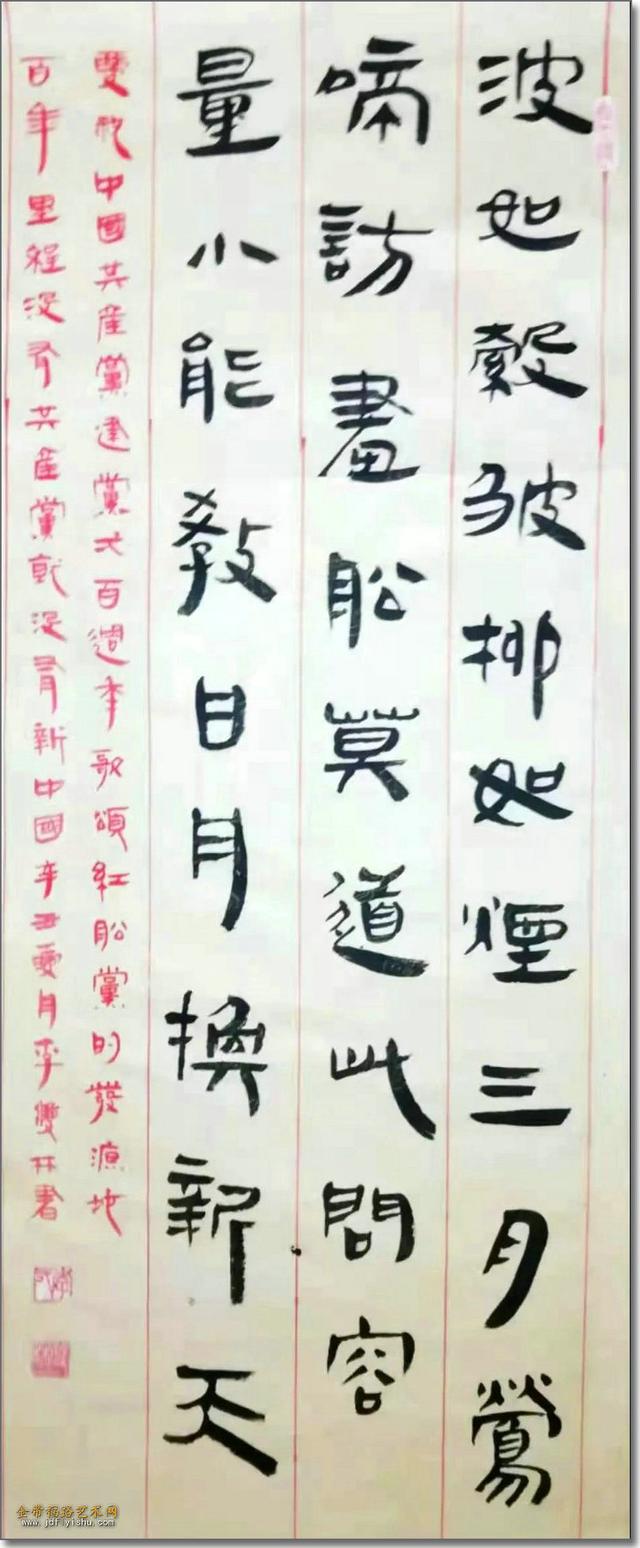 波如縠皱柳如煙三月鶯
啼訪畫船莫道此間容
量小能教日月換新天
慶祝中國共産黨建黨一百週年歌頌紅船黨的發源地
百年里程没有共産黨就没有新中國辛丑夏月李雙林書
金带福路艺术网
www.jdflyishu.com